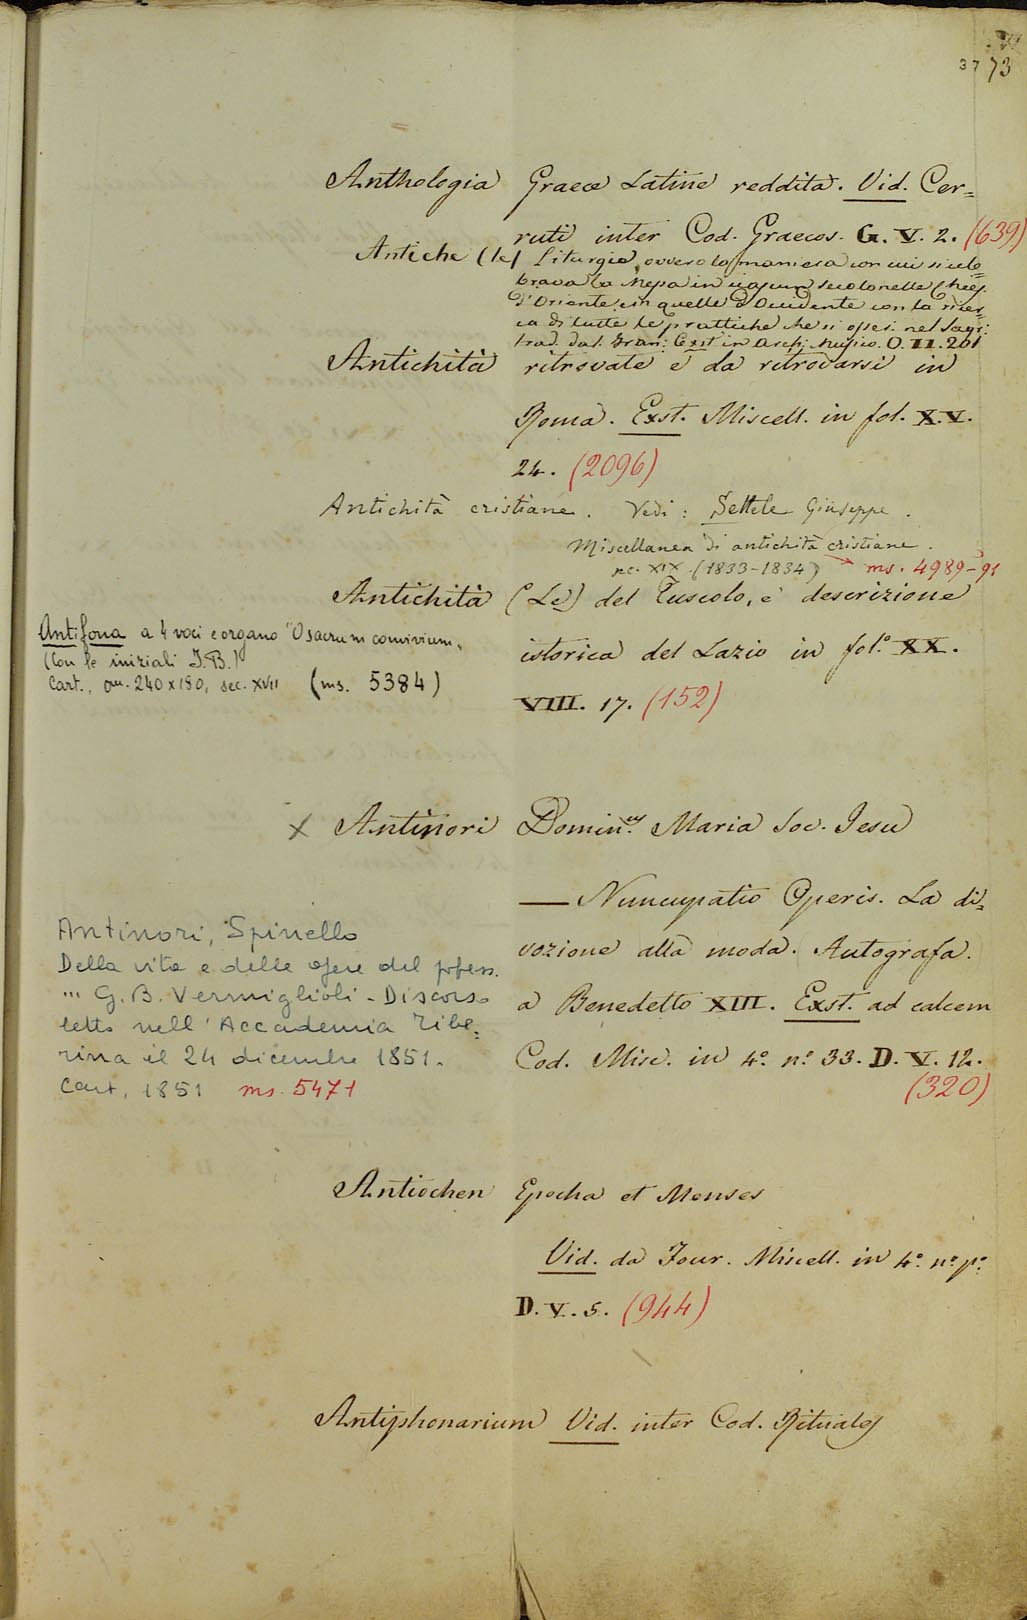 37 73
Anthologia Graece Latine reddita. Vid. Cer=
ruti inter Cod. Graecos. G. V. 2. (639)
Antiche (le) Liturgie, ovvero la maniera con cui si cele=
brava la Messa in ciascun secolo nelle Chies.
d'Oriente, e in quelle d'Occidente con la ricer=
ca di tutte le prattiche che si osser. nel Sagr:
trad. dal Fran: Exst in Arch: Music. O. II. 201
Antichità ritrovate e da ritrovarsi in
Roma. Exst. Miscell. in fol. X.V.
24. (2096)
Antichità cristiane. Vedi: Settele Giuseppe.
Miscellanea di antichità cristiane.
sec. XIX (1833-1834) → ms. 4989-91
Antichità (Le) del Tuscolo, e descrizione
istorica del Lazio in fol.º XX.
VIII. 17. (152)
Antifona a 4 voci e organo "O sacrum convivium„
(Con le iniziali J.B.)
Cart., mm. 240x180, sec. XVII (ms. 5384)
x Antinori Domin.us Maria Soc. Jesu
— Nuncupatio Operis. La di=
vozione alla moda. Autografa.
a Benedetto XIII. Exst. ad calcem
Cod. Misc. in 4.º n.º 33. D. V. 12.
(320)
Antinori, Spinello
Della vita e delle opere del profess.
... G. B. Vermiglioli - Discorso
letto nell'Accademia Tibe=
rina il 24 dicembre 1851.
Cart, 1851 ms. 5471
Antiochen Epocha et Menses
Vid. da Four. Miscell. in 4.º n.º p.º
D. V. 5. (944)
Antiphonarium Vid. inter Cod. Rituales